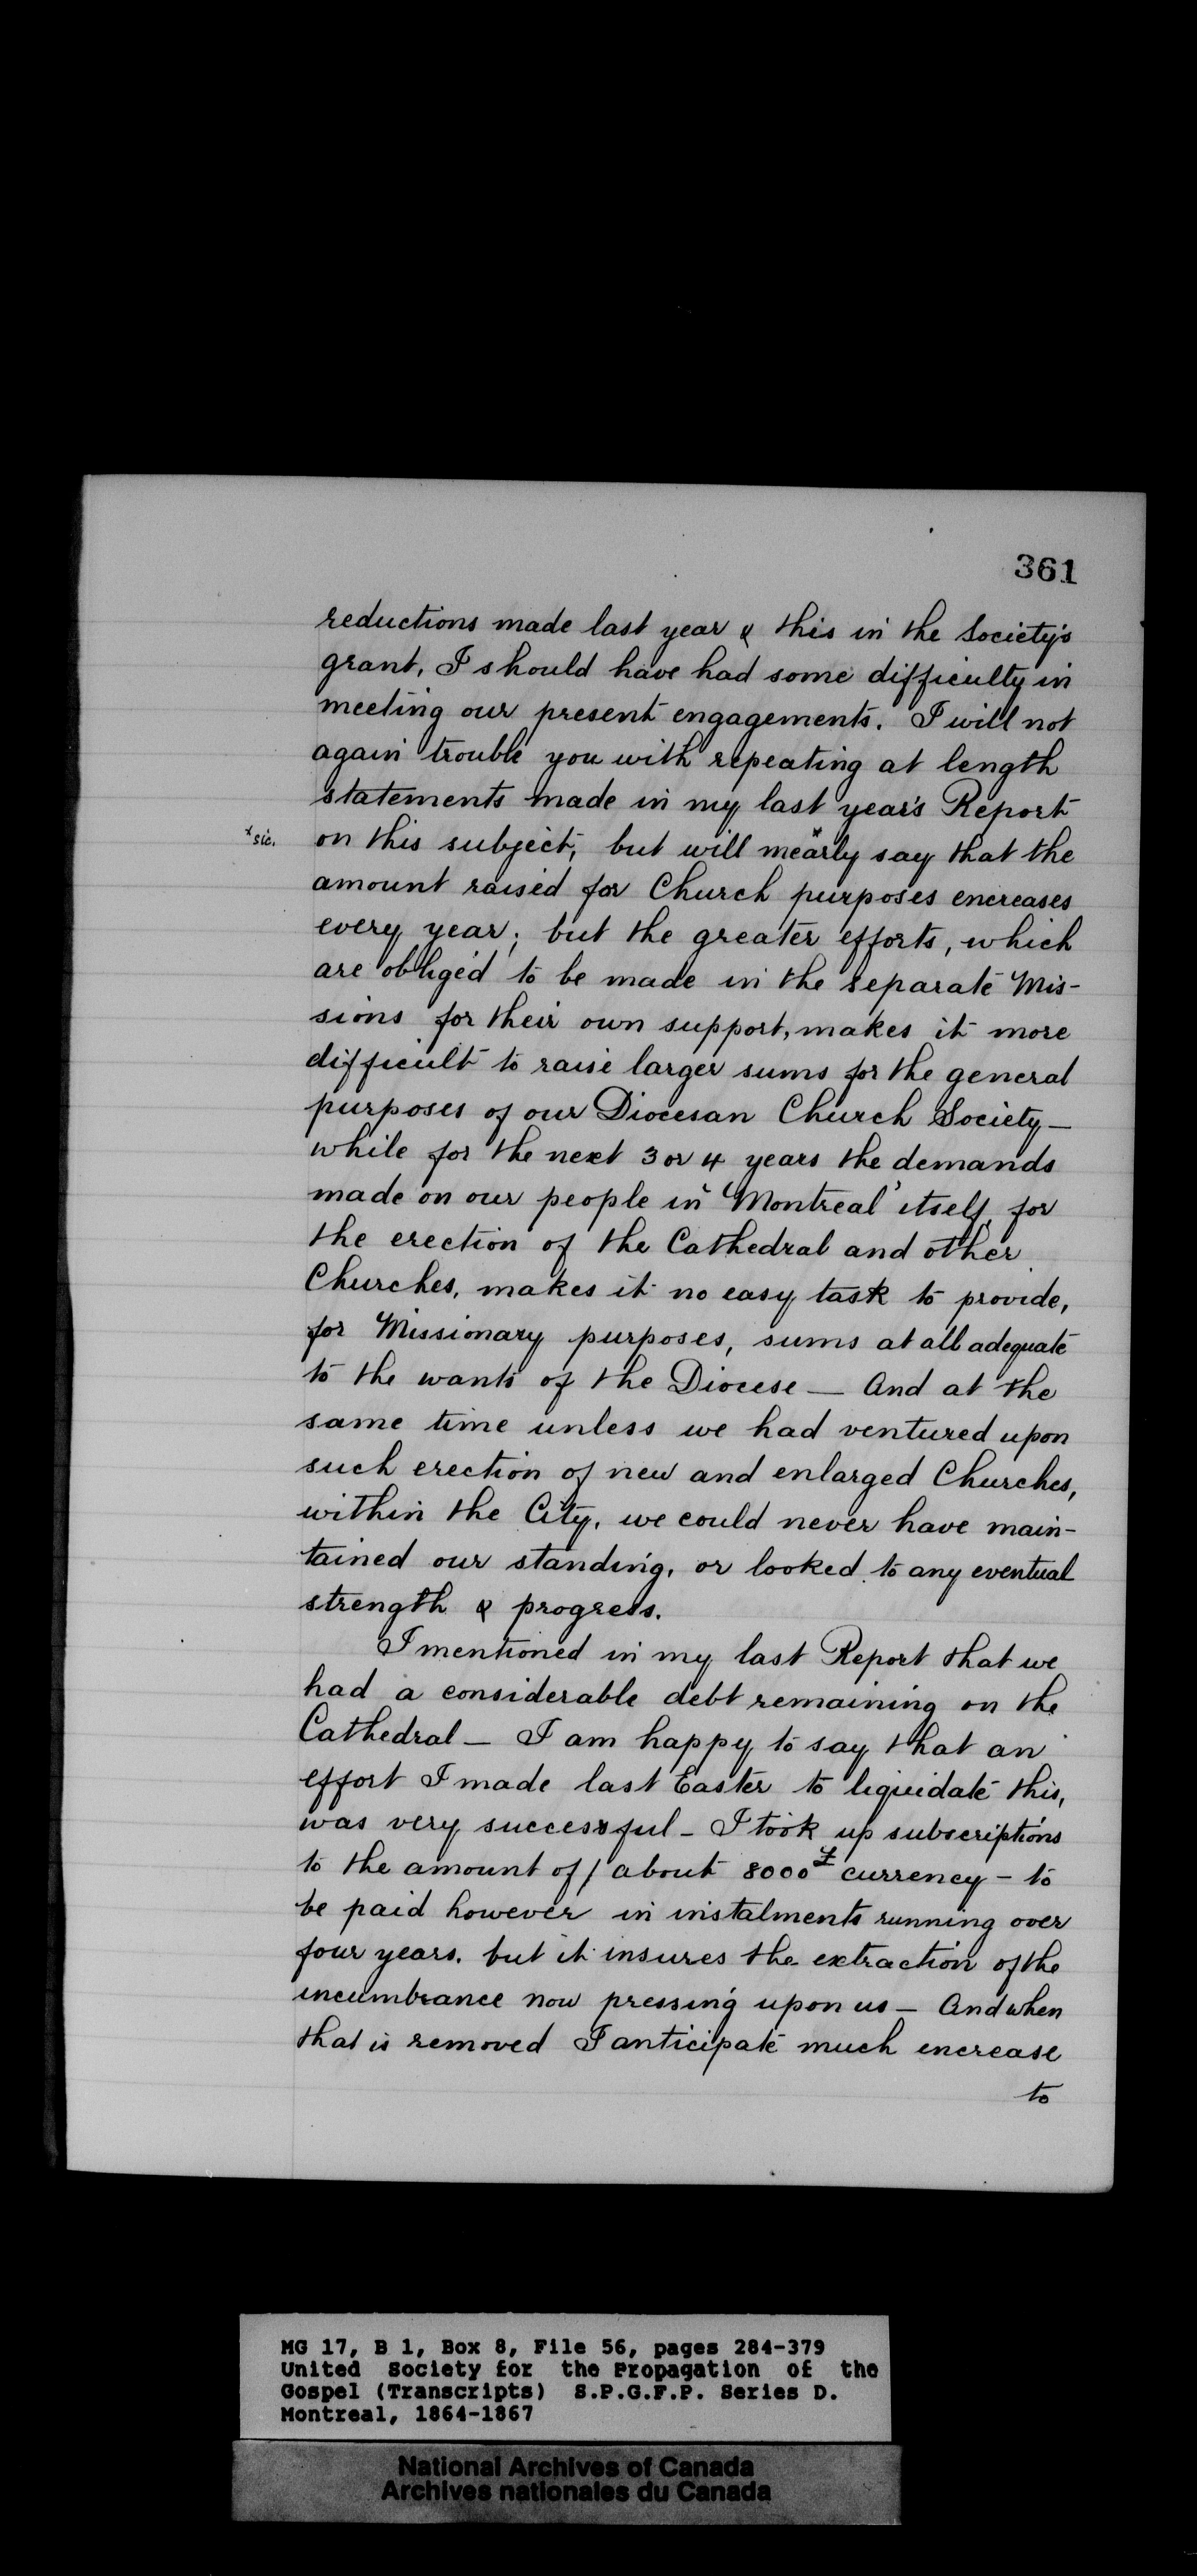 361
reductions made last year & this in the Society's
grant, I should have had some difficulty in
meeting our present engagements. I will not
again trouble you with repeating at length
statements made in my last year's Report
x sic.
on this subject, but will mearly x say that the
amount raised for Church purposes encreases
every year; but the greater efforts, which
are obliged to be made in the separate Mis-
sions for their own support, makes it more
difficult to raise larger sums for the general
purposes of our Diocesan Church Society —
while for the next 3 or 4 years the demands
made on our people in "Montreal" itself, for
the erection of the Cathedral and other
Churches, makes it no easy task to provide,
for Missionary purposes, sums at all adequate
to the wants of the Diocese — And at the
same time unless we had ventured upon
such erection of new and enlarged Churches,
within the City, we could never have main-
tained our standing, or looked to any eventual
strength & progress.
I mentioned in my last Report that we
had a considerable debt remaining on the
Cathedral — I am happy to say that an
effort I made last Easter to liquidate this,
was very successful — I took up subscriptions
to the amount of / about 8000£ currency — to
be paid however in instalments running over
four years. but it insures the extraction of the
incumbrance now pressing upon us — And when
that is removed I anticipate much encrease
to
MG 17, B 1, Box 8, File 56, pages 284-379
United Society for the Propagation of the
Gospel (Transcripts) S.P.G.F.P. Series D.
Montreal, 1864-1867
National Archives of Canada
Archives nationales du Canada